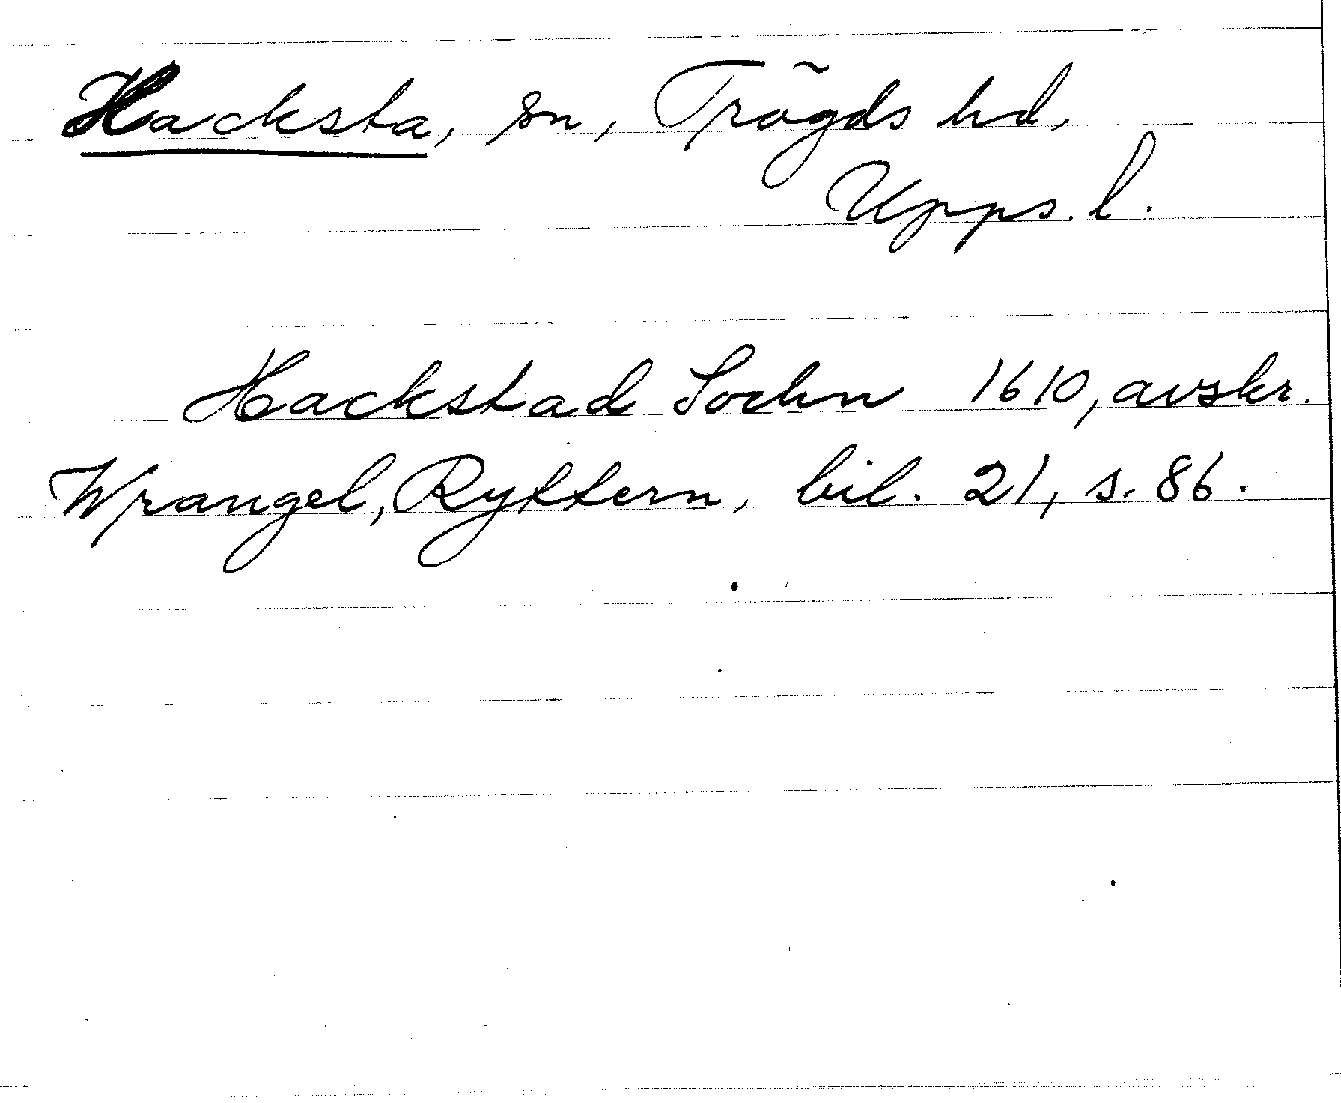 Hacksta, sn, Trögds hd,
Upps. l.
Hackstad Sochn 1610, avskr.
Wrangel, Ryttern, bil. 21, s. 86.